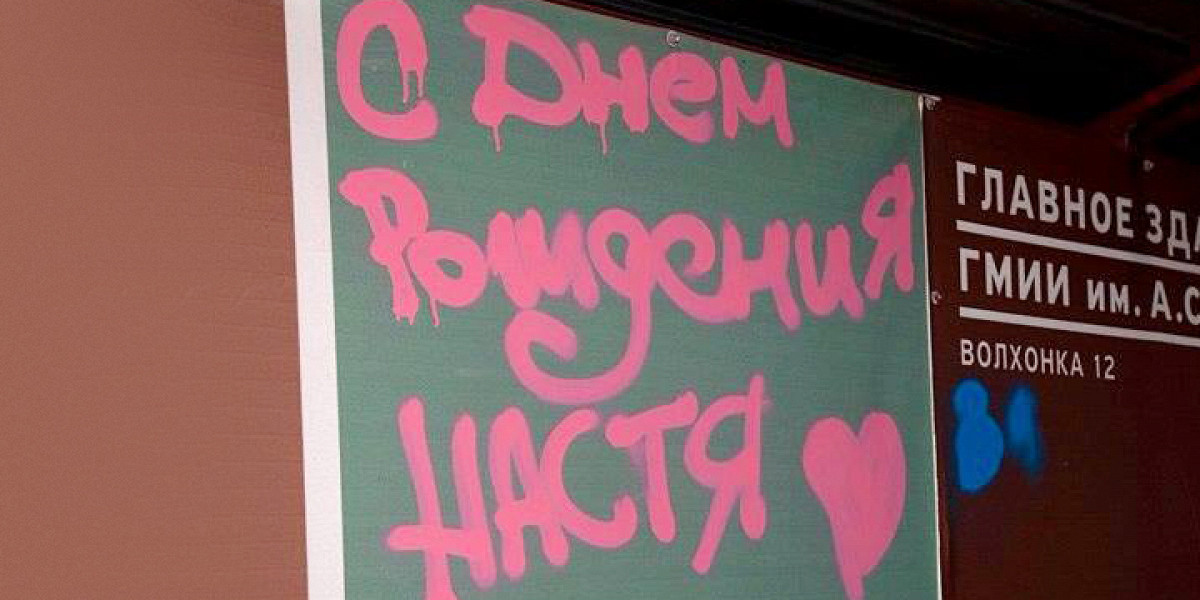 С Днем
Рождения
НАСТЯ
ГЛАВНОЕ
ГМИИ им. А.С
ВОЛХОНКА 12